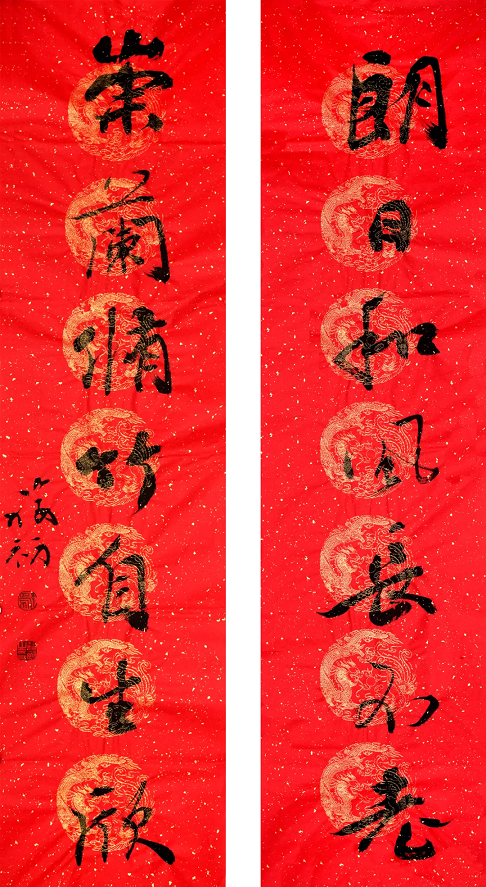 朗日和風長不老
崇蘭脩竹自生欣
初